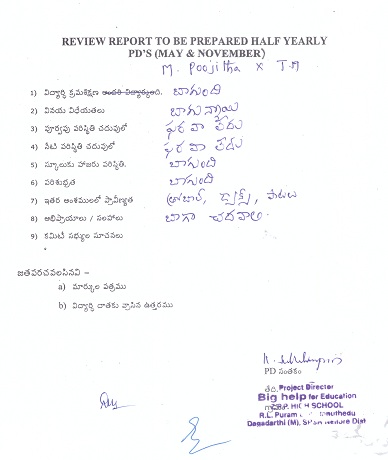 REVIEW REPORT TO BE PREPARED HALF YEARLY
PD'S (MAY & NOVEMBER)
M. Poojitha X T.M
1) విద్యార్థి క్రమశిక్షణ బాగుంది
2) వినయ విధేయతలు బాగున్నాయి
3) పూర్వపు పరిస్థితి చదువులో పరవాలేదు
4) నేటి పరిస్థితి చదువులో పరవాలేదు
5) స్కూలుకు హాజరు పరిస్థితి. బాగుంది
6) పరిశుభ్రత బాగుంది
7) ఇతర అంశములలో ప్రావీణ్యత డ్రాక్స్, పాటలు
8) అభిప్రాయాలు / సలహాలు బాగా చదవాలి.
9) కమిటీ సభ్యుల సూచనలు
జతపరచవలసినవి –
a) మార్కుల పత్రము
b) విద్యార్థి దాతకు వ్రాసిన ఉత్తరము
PD సంతకం
తేది. Project Director
Big help for Education
Z.B.P. HIGH SCHOOL
R.L. Puram
Dagadarthi (M), SPSR Nellore Dist